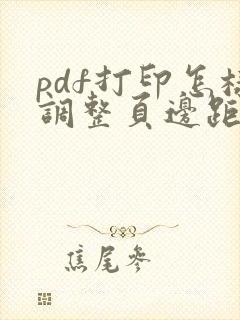 pdf打印怎樣
調整頁邊距
焦尾參